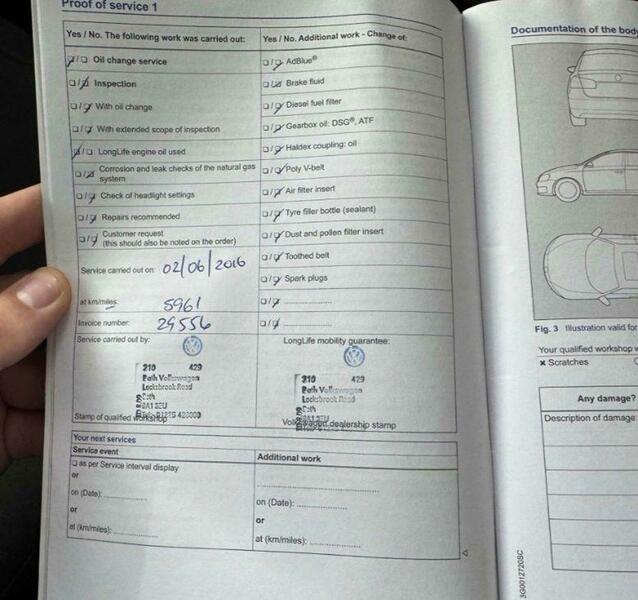 Proof of service 1
Yes / No. The following work was carried out:
☑/☐ Oil change service
☐/☑ Inspection
☐/☑ With oil change
☐/☑ With extended scope of inspection
☑/☐ LongLife engine oil used
☐/☑ Corrosion and leak checks of the natural gas
system
☐/☑ Check of headlight settings
☐/☑ Repairs recommended
☐/☑ Customer request
(this should also be noted on the order)
Service carried out on: 02/06/2016
at km/miles: 5961
Invoice number: 29556
Service carried out by:
210 429
Bath Volkswagen
Locksbrook Road
Bath
BA1 3EU
Stamp of qualified workshop
Yes / No. Additional work - Change of:
☐/☑ AdBlue®
☐/☑ Brake fluid
☐/☑ Diesel fuel filter
☐/☑ Gearbox oil: DSG®, ATF
☐/☑ Haldex coupling: oil
☐/☑ Poly V-belt
☐/☑ Air filter insert
☐/☑ Tyre filler bottle (sealant)
☐/☑ Dust and pollen filter insert
☐/☑ Toothed belt
☐/☑ Spark plugs
☐/☑ ....................
☐/☑ ....................
LongLife mobility guarantee:
210 429
Bath Volkswagen
Locksbrook Road
Bath
BA1 3EU
Volkswagen dealership stamp
Your next services
Service event
☐ as per Service interval display
or
on (Date): ..............
or
at (km/miles): ..............
Additional work
..............................
on (Date): ................
or
at (km/miles): ................
Documentation of the bod
Fig. 3 Illustration valid for
Your qualified workshop w
× Scratches
Any damage?
Description of damage:
3G0012720SC